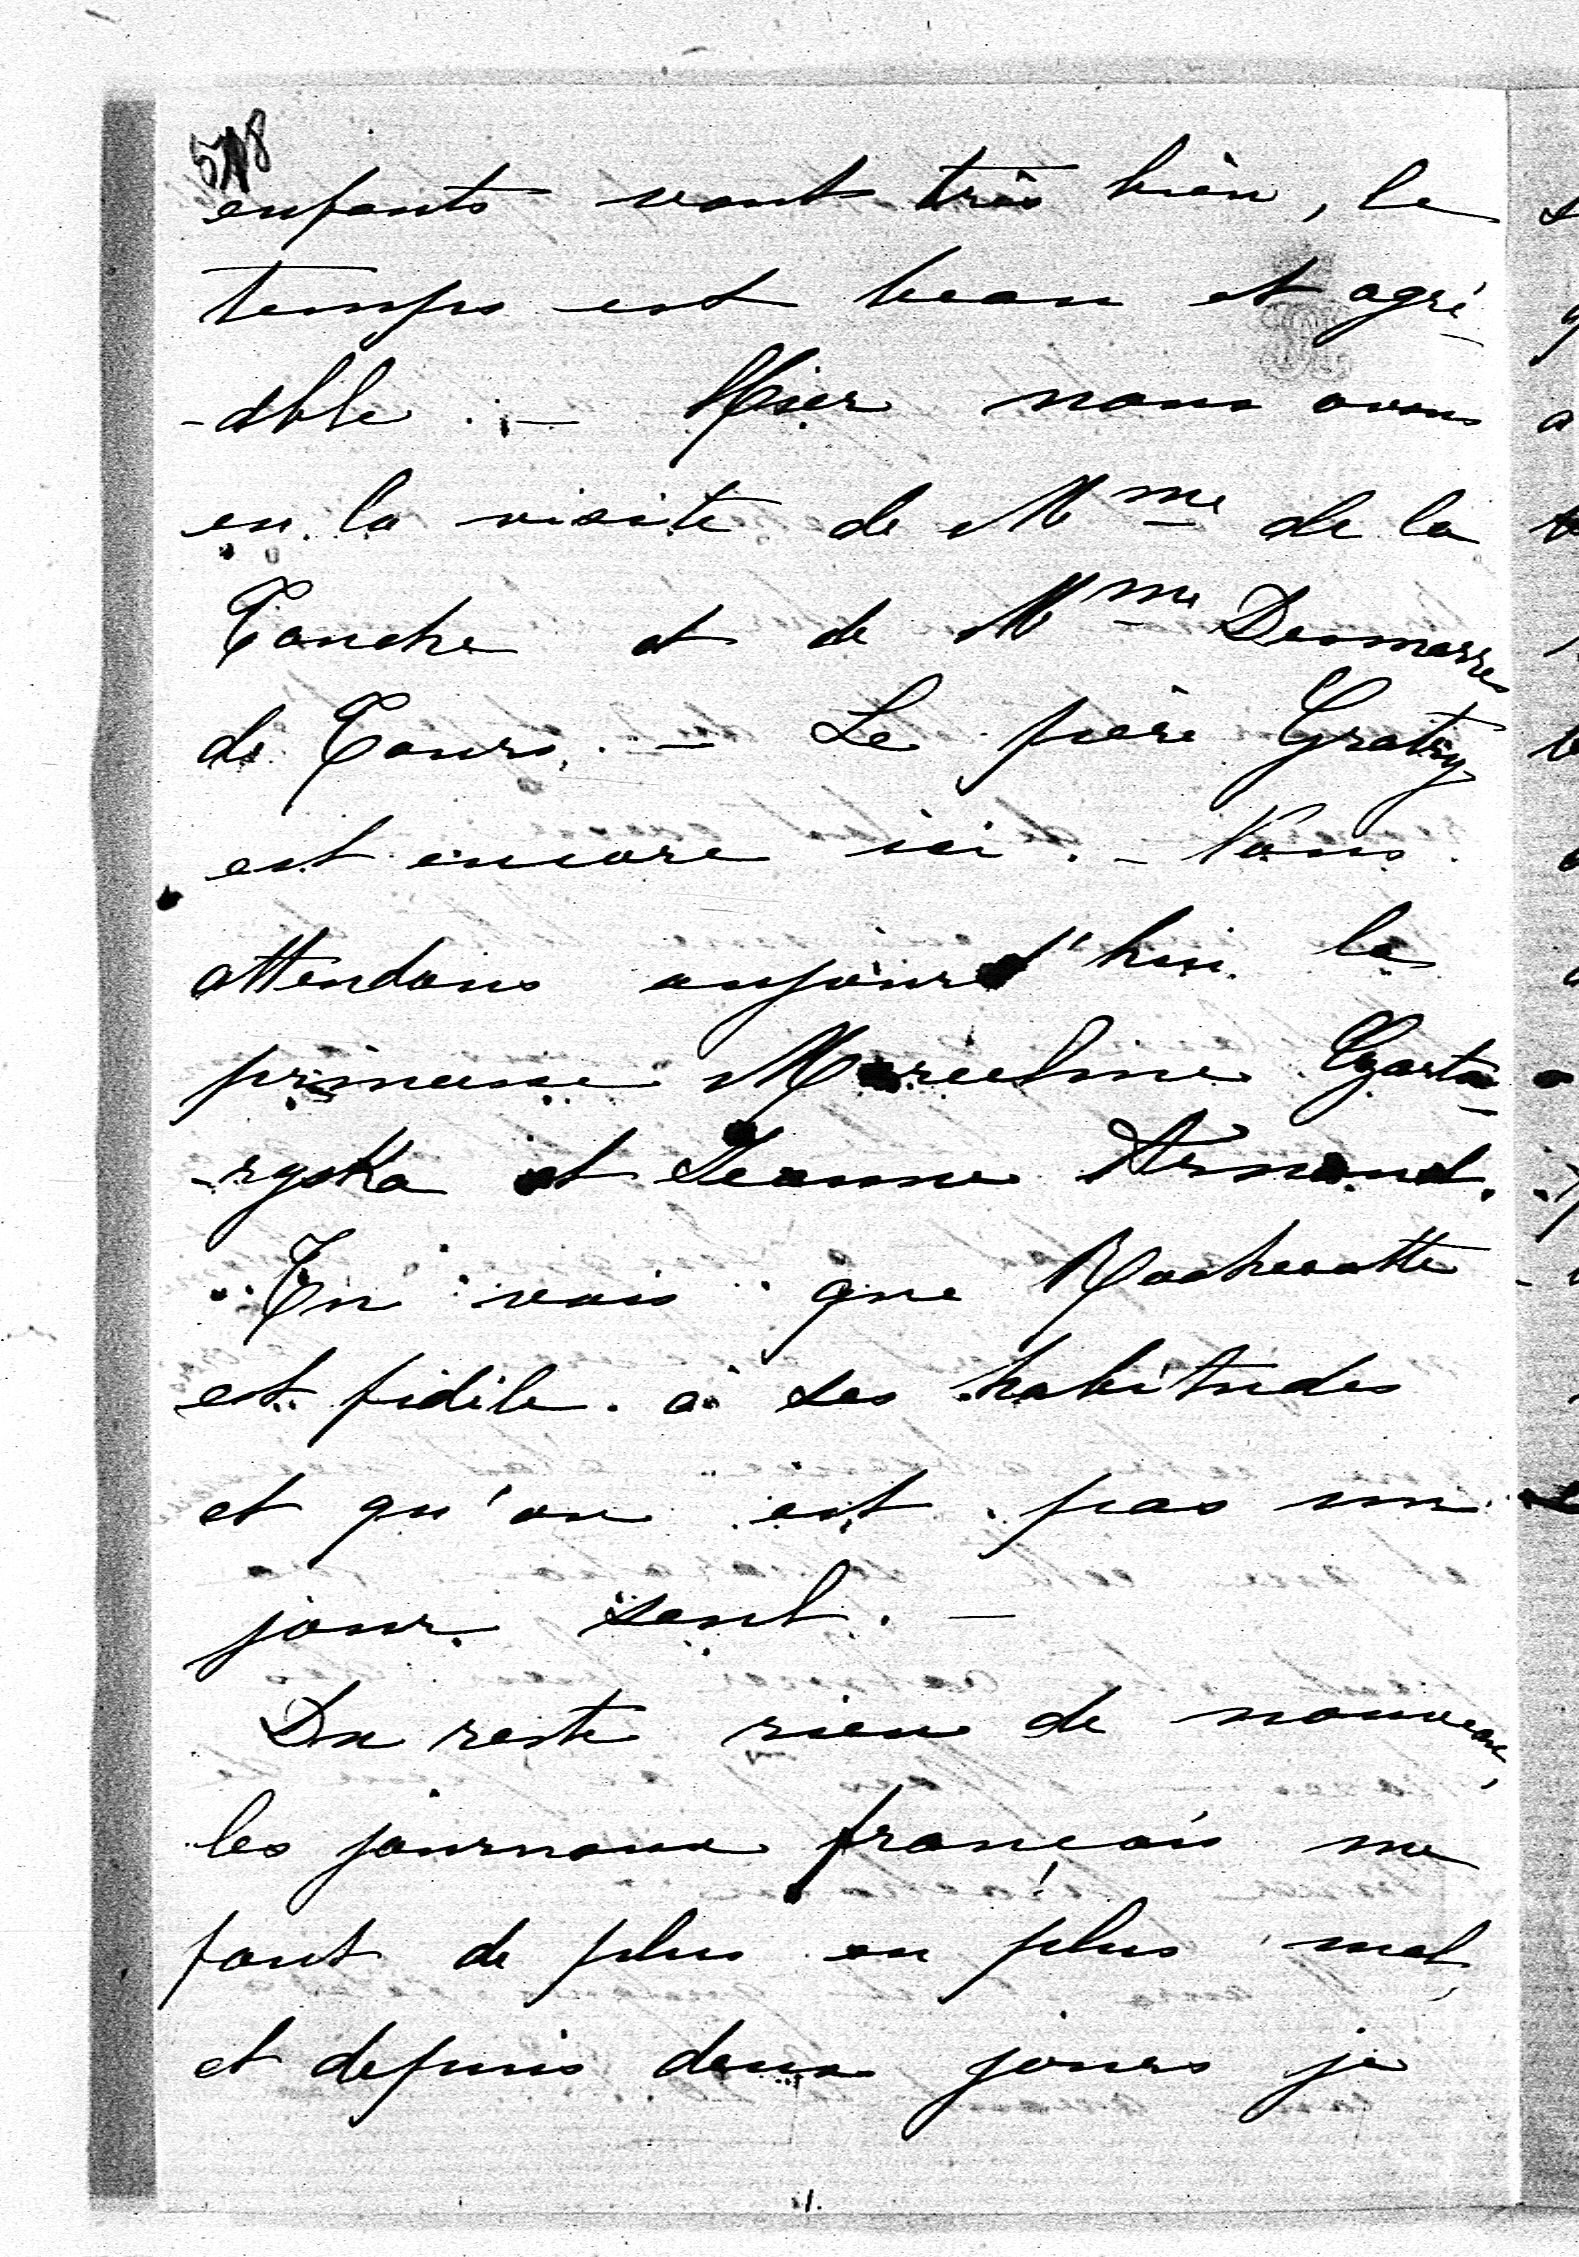 578
enfants vont très bien, le
temps est beau et agré-
-able. - Hier nous avons
eu la visite de Mme de la
Touche et de Mme Desmarres
de Tours. - Le père Gratry
est encore ici. - Nous
attendons aujourd'hui la
princesse Marceline Czarto-
-ryska et Jeanne Arnaud.
Tu vois que Rochecotte
est fidèle à ses habitudes
et qu'on est pas un
jour seul. -
Du reste rien de nouveau,
les journaux français me
font de plus en plus mal,
et depuis deux jours je